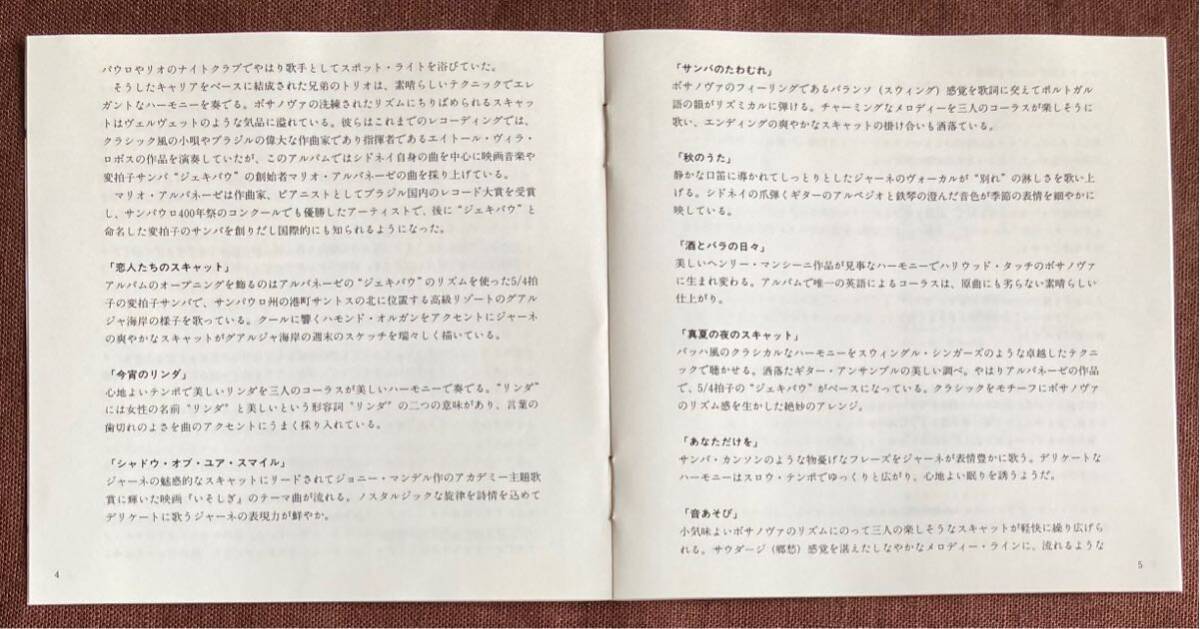 パウロやリオのナイトクラブでやはり歌手としてスポット・ライトを浴びていた。
そうしたキャリアをベースに結成された兄弟のトリオは、素晴らしいテクニックでエレ
ガントなハーモニーを奏でる。ボサノヴァの洗練されたリズムにちりばめられるスキャッ
トはヴェルヴェットのような気品に溢れている。彼らはこれまでのレコーディングでは、
クラシック風の小唄やブラジルの偉大な作曲家であり指揮者であるエイトール・ヴィラ・
ロボスの作品を演奏していたが、このアルバムではシドネイ自身の曲を中心に映画音楽や
変拍子サンバ“ジェキバウ”の創始者マリオ・アルバネーゼの曲を採り上げている。
マリオ・アルバネーゼは作曲家、ピアニストとしてブラジル国内のレコード大賞を受賞
し、サンパウロ400年祭のコンクールでも優勝したアーティストで、後に“ジェキバウ”と
命名した変拍子のサンバを創りだし国際的にも知られるようになった。
「恋人たちのスキャット」
アルバムのオープニングを飾るのはアルバネーゼの“ジェキバウ”のリズムを使った5/4拍
子の変拍子サンバで、サンパウロ州の港町サントスの北に位置する高級リゾートのグアル
ジャ海岸の様子を歌っている。クールに響くハモンド・オルガンをアクセントにジャーネ
の爽やかなスキャットがグアルジャ海岸の週末のスケッチを瑞々しく描いている。
「今宵のリンダ」
心地よいテンポで美しいリンダを三人のコーラスが美しいハーモニーで奏でる。“リンダ”
には女性の名前“リンダ”と美しいという形容詞“リンダ”の二つの意味があり、言葉の
歯切れのよさを曲のアクセントにうまく採り入れている。
「シャドウ・オブ・ユア・スマイル」
ジャーネの魅惑的なスキャットにリードされてジョニー・マンデル作のアカデミー主題歌
賞に輝いた映画『いそしぎ』のテーマ曲が流れる。ノスタルジックな旋律を詩情を込めて
デリケートに歌うジャーネの表現力が鮮やか。
4
「サンバのたわむれ」
ボサノヴァのフィーリングであるバランソ（スウィング）感覚を歌詞に交えてポルトガル
語の韻がリズミカルに弾ける。チャーミングなメロディーを三人のコーラスが楽しそうに
歌い、エンディングの爽やかなスキャットの掛け合いも洒落ている。
「秋のうた」
静かな口笛に導かれてしっとりとしたジャーネのヴォーカルが“別れ”の淋しさを歌い上
げる。シドネイの爪弾くギターのアルペジオと鉄琴の澄んだ音色が季節の表情を細やかに
映している。
「酒とバラの日々」
美しいヘンリー・マンシーニ作品が見事なハーモニーでハリウッド・タッチのボサノヴァ
に生まれ変わる。アルバムで唯一の英語によるコーラスは、原曲にも劣らない素晴らしい
仕上がり。
「真夏の夜のスキャット」
バッハ風のクラシカルなハーモニーをスウィングル・シンガーズのような卓越したテクニ
ックで聴かせる。洒落たギター・アンサンブルの美しい調べ。やはりアルバネーゼの作品
で、5/4拍子の“ジェキバウ”がベースになっている。クラシックをモチーフにボサノヴァ
のリズム感を生かした絶妙のアレンジ。
「あなただけを」
サンバ・カンソンのような物憂げなフレーズをジャーネが表情豊かに歌う。デリケートな
ハーモニーはスロウ・テンポでゆっくりと広がり、心地よい眠りを誘うようだ。
「音あそび」
小気味よいボサノヴァのリズムにのって三人の楽しそうなスキャットが軽快に繰り広げら
れる。サウダージ（郷愁）感覚を湛えたしなやかなメロディー・ラインに、流れるような
5